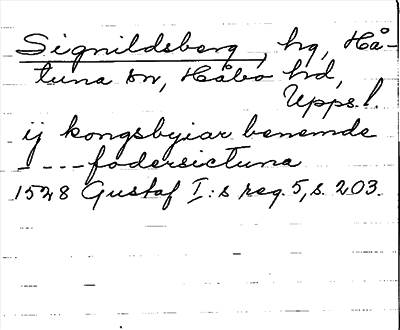 Signildsberg, hg, Hå-
tuna sn, Håbo hd,
Upps.l.
ij kongsbyiar benemde
- - - fodersictuna
1528 Gustaf I:s reg. 5, s. 203.